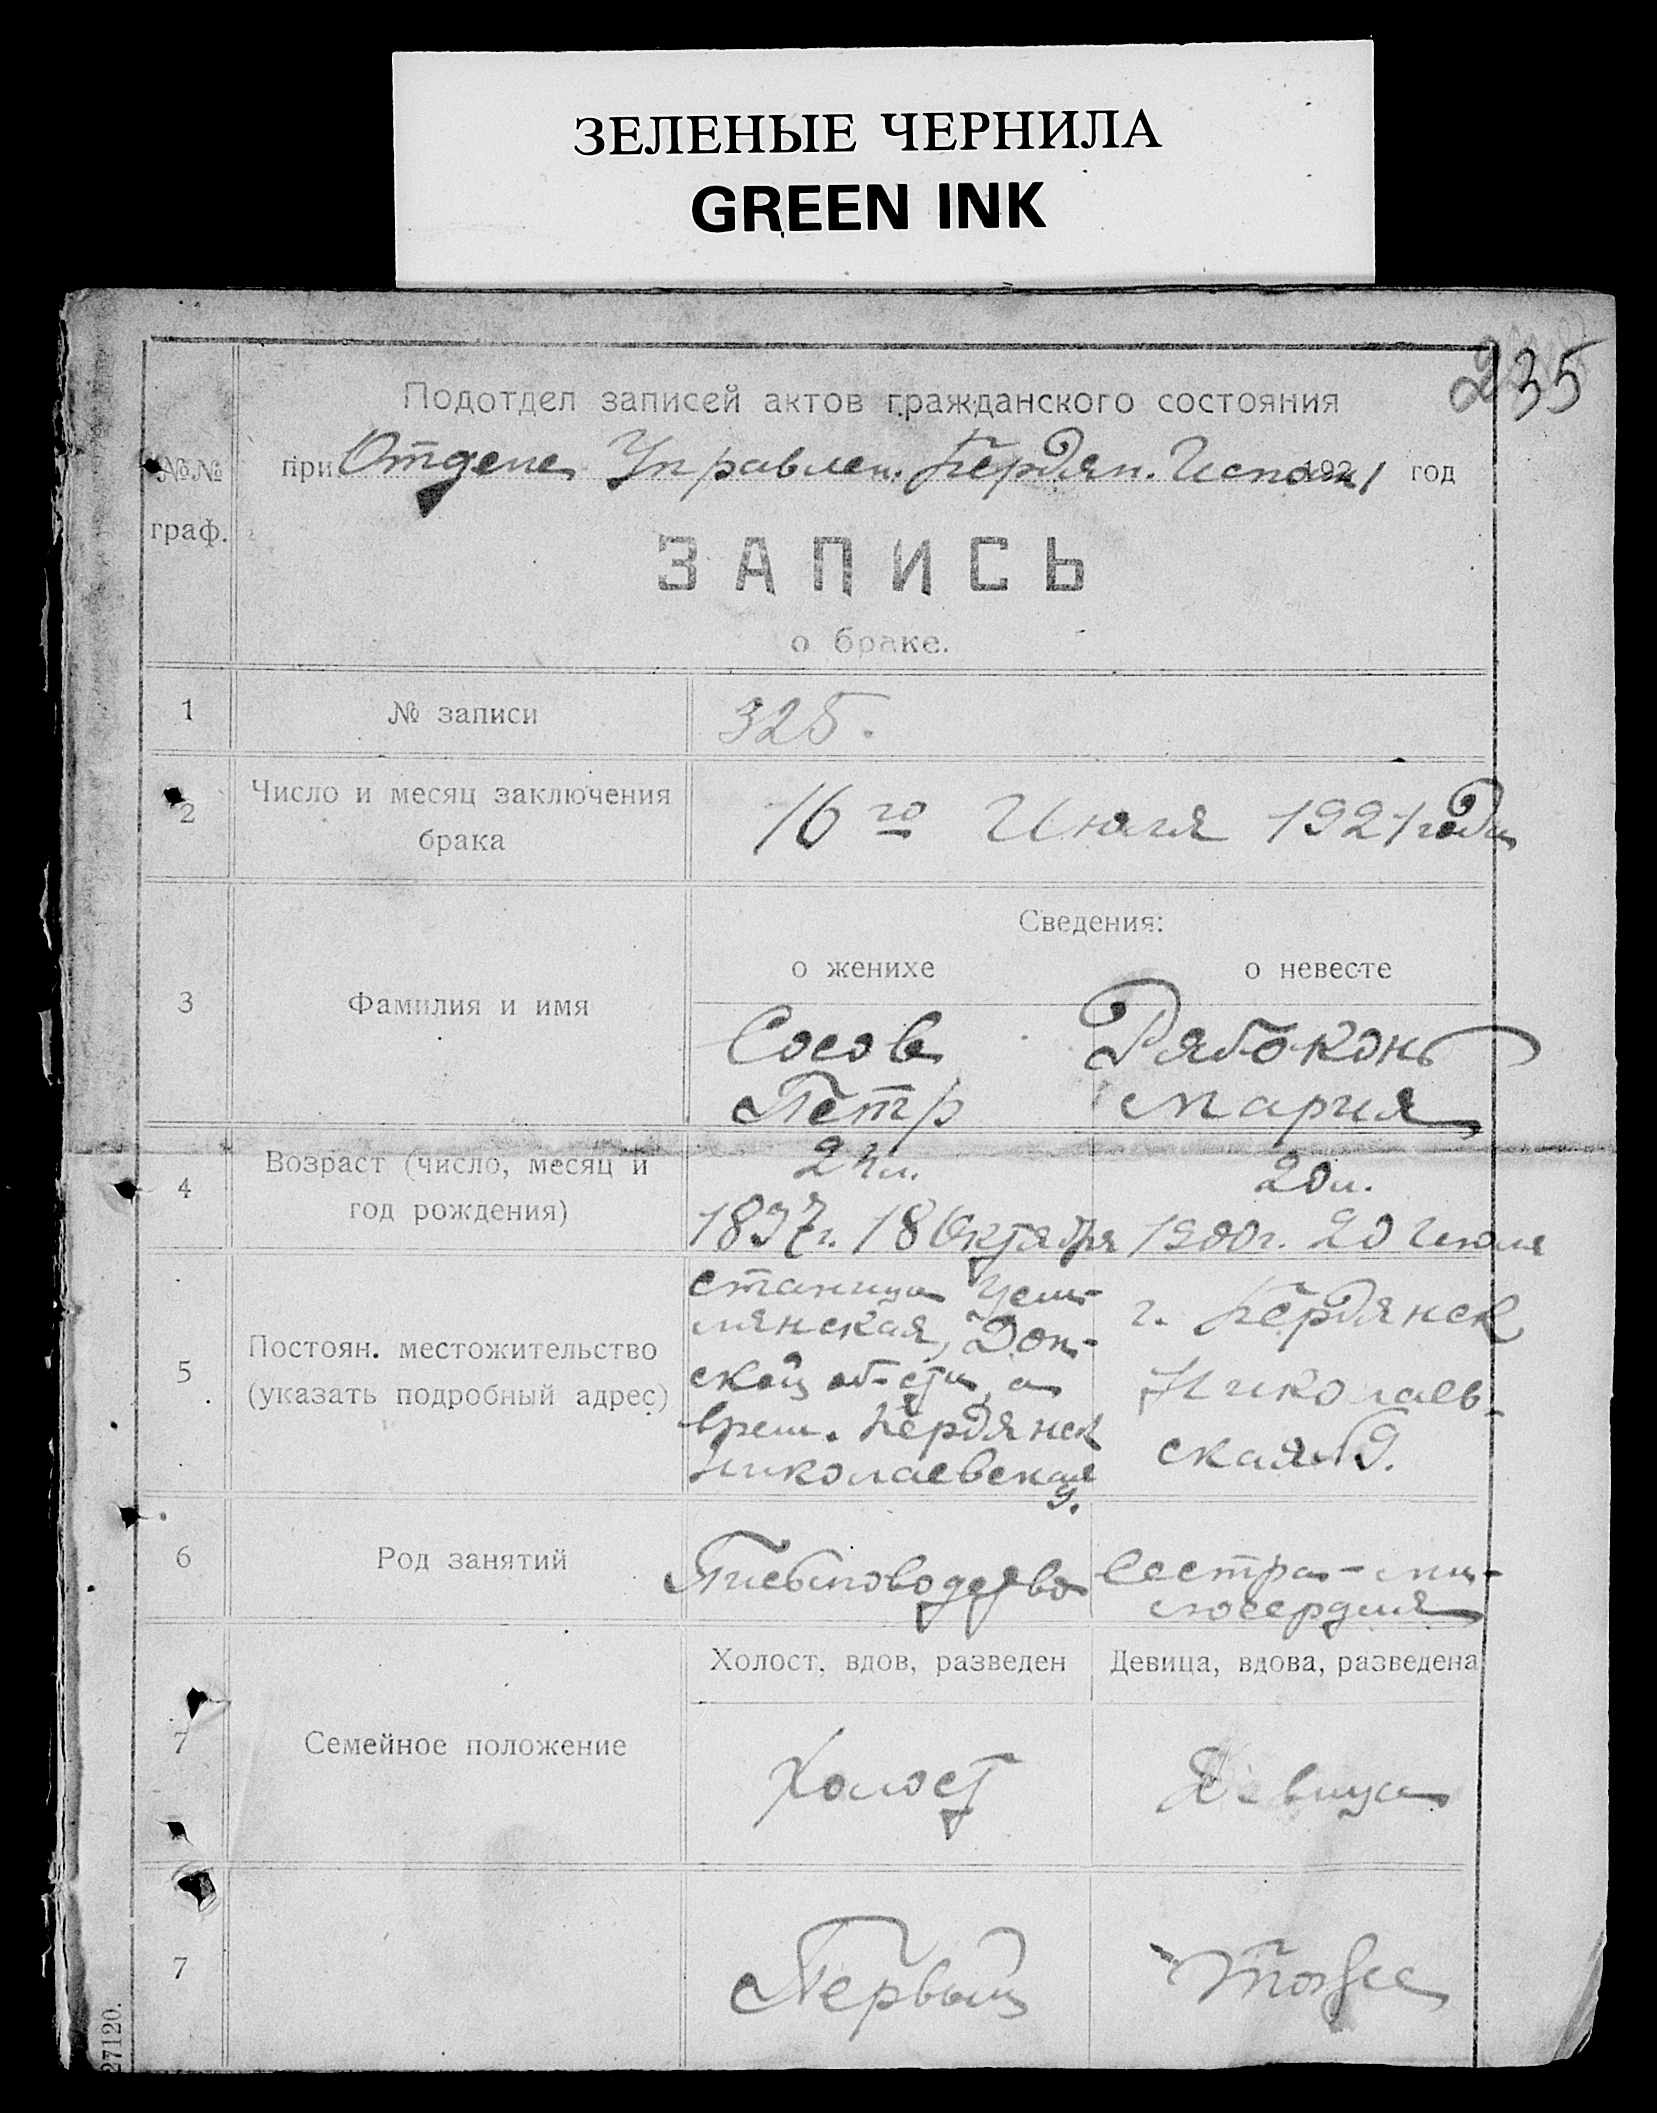 ЗЕЛЕНЫЕ ЧЕРНИЛА
GREEN INK
235
Подотдел записей актов гражданского состояния
№№ граф.
при Отделе Управлен. Бердян. Исполк 1921 год
ЗАПИСЬ
о браке.
1 № записи 325.
2 Число и месяц заключения брака
16го Июля 1921 года
Сведения:
о женихе о невесте
3 Фамилия и имя
Сосов Рябоконь
Петр Мария
4 Возраст (число, месяц и год рождения)
24л. 20л.
1897г. 18 Октября 1900г. 20 Июля
5 Постоян. местожительство (указать подробный адрес)
станица
лянская, Дон-
ской об-сти, а
врем. Бердянск
Николаевская
9.
г. Бердянск
Николаев-
ская 9.
6 Род занятий
Сестра-ми-
лосердия
Холост, вдов, разведен Девица, вдова, разведена
7 Семейное положение
Холост Девица
7 Первый тоже
27120.